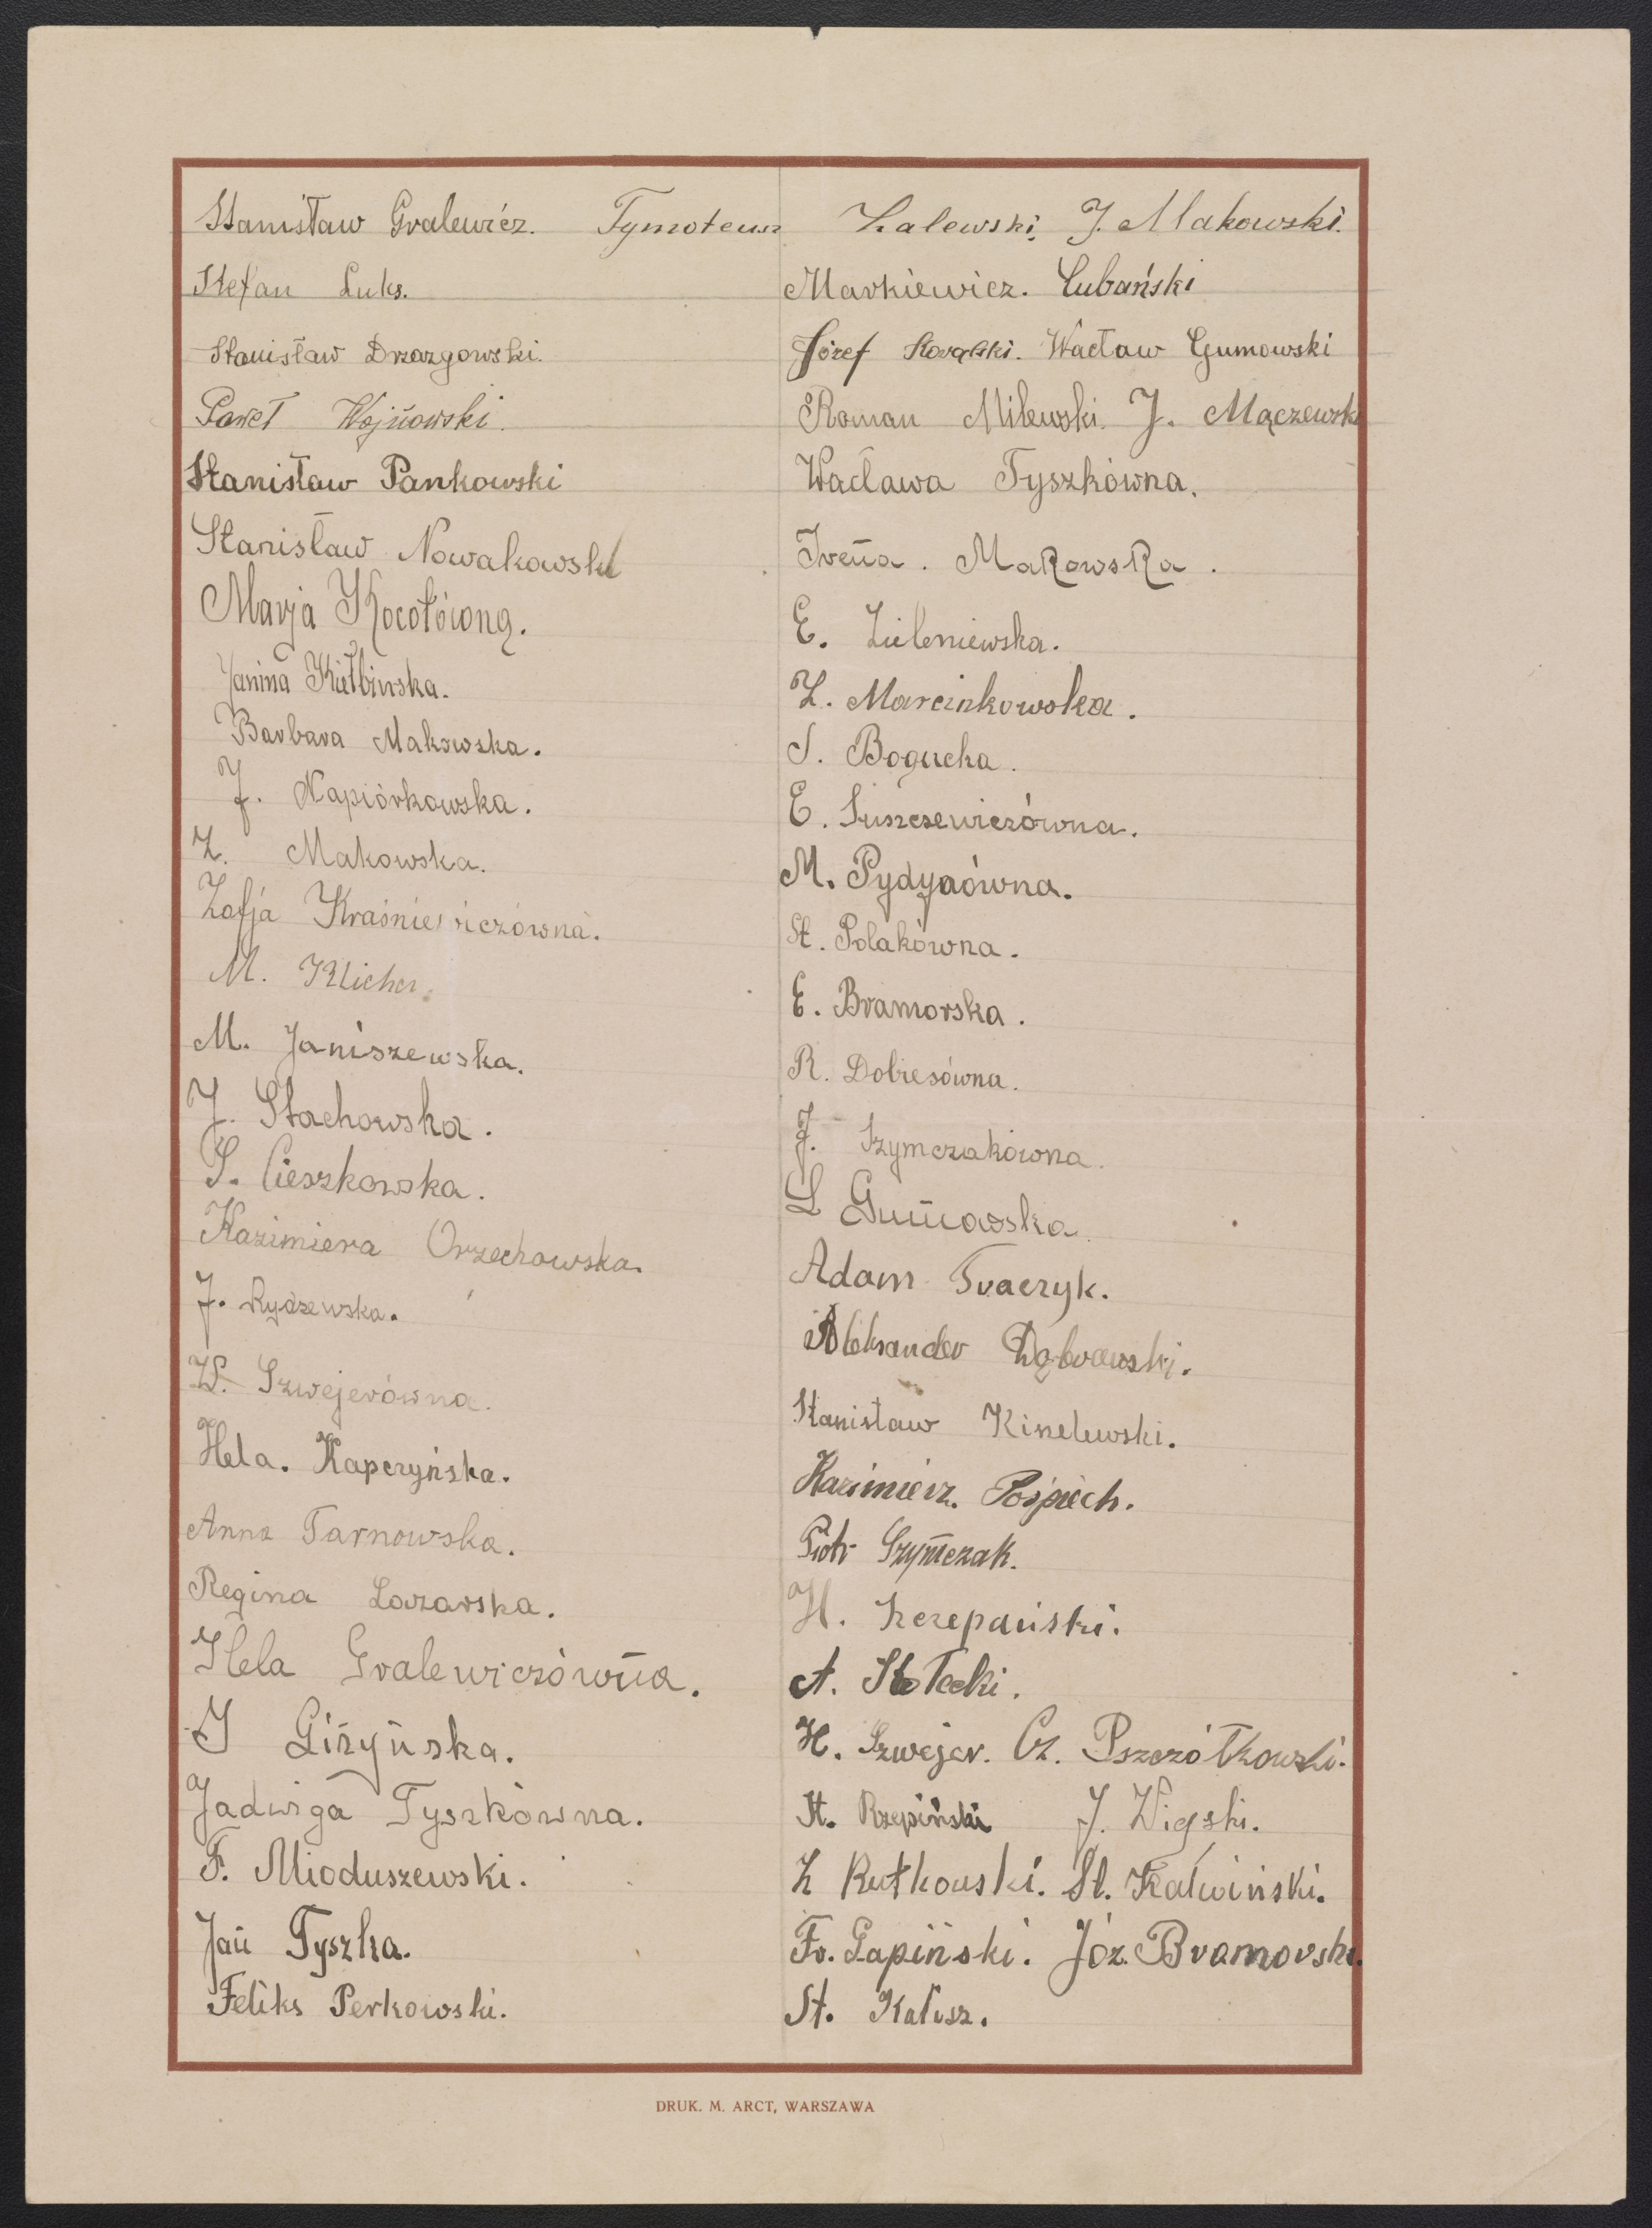 Stanisław Gralewicz. Tymoteusz Zalewski, J. Makowski.
Stefan Luks.
Stanisław Drzazgowski.
Paweł Wojnowski.
Stanisław Pankowski
Stanisław Nowakowski
Marja Kocotówna.
Janina Kiełbińska.
Barbara Makowska.
J. Napiórkowska.
Z. Makowska.
Zofja Kraśniewiczówna.
M. Klicher.
M. Janiszewska.
J. Stachowska.
S. Cieszkowska.
Kazimiera Orzechowska.
J. Rydzewska.
W. Szwejerówna.
Hela. Kapczyńska.
Anna Tarnowska.
Regina Lazarska.
Hela Gralewiczówna.
J Giżyńska.
Jadwiga Tyszkówna.
F. Mioduszewski.
Jan Tyszka.
Feliks Perkowski.
Markiewicz. Lubański
Józef Kowalski. Wacław Gumowski
Roman Milewski. J. Mączewski
Wacława Tyszkówna.
Irena. Makowska.
E. Zieleniewska.
Z. Marcinkowska.
S. Bogucka.
E. Suszczewiczówna.
M. Pydynówna.
St. Polakówna.
E. Bramorska.
R. Dobiesówna.
J. Szymczakówna.
L Gumowska.
Adam Traczyk.
Aleksander Dąbrowski.
Stanisław Kinelewski.
Kazimierz. Pośpiech.
Piotr Szymczak.
H. Szczepański.
A. Stołecki.
H. Szwejer. Cz. Pszczółkowski.
St. Rzepiński J. Wigski.
Z Rutkowski. St. Kalwiński.
Fr. Łapiński. Józ. Bramorski.
St. Kałusz.
DRUK. M. ARCT, WARSZAWA